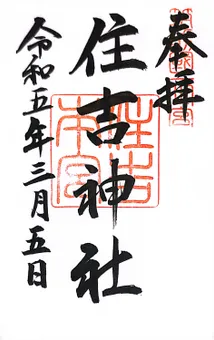 奉拝
住吉神社
令和五年三月五日
住吉
本宮